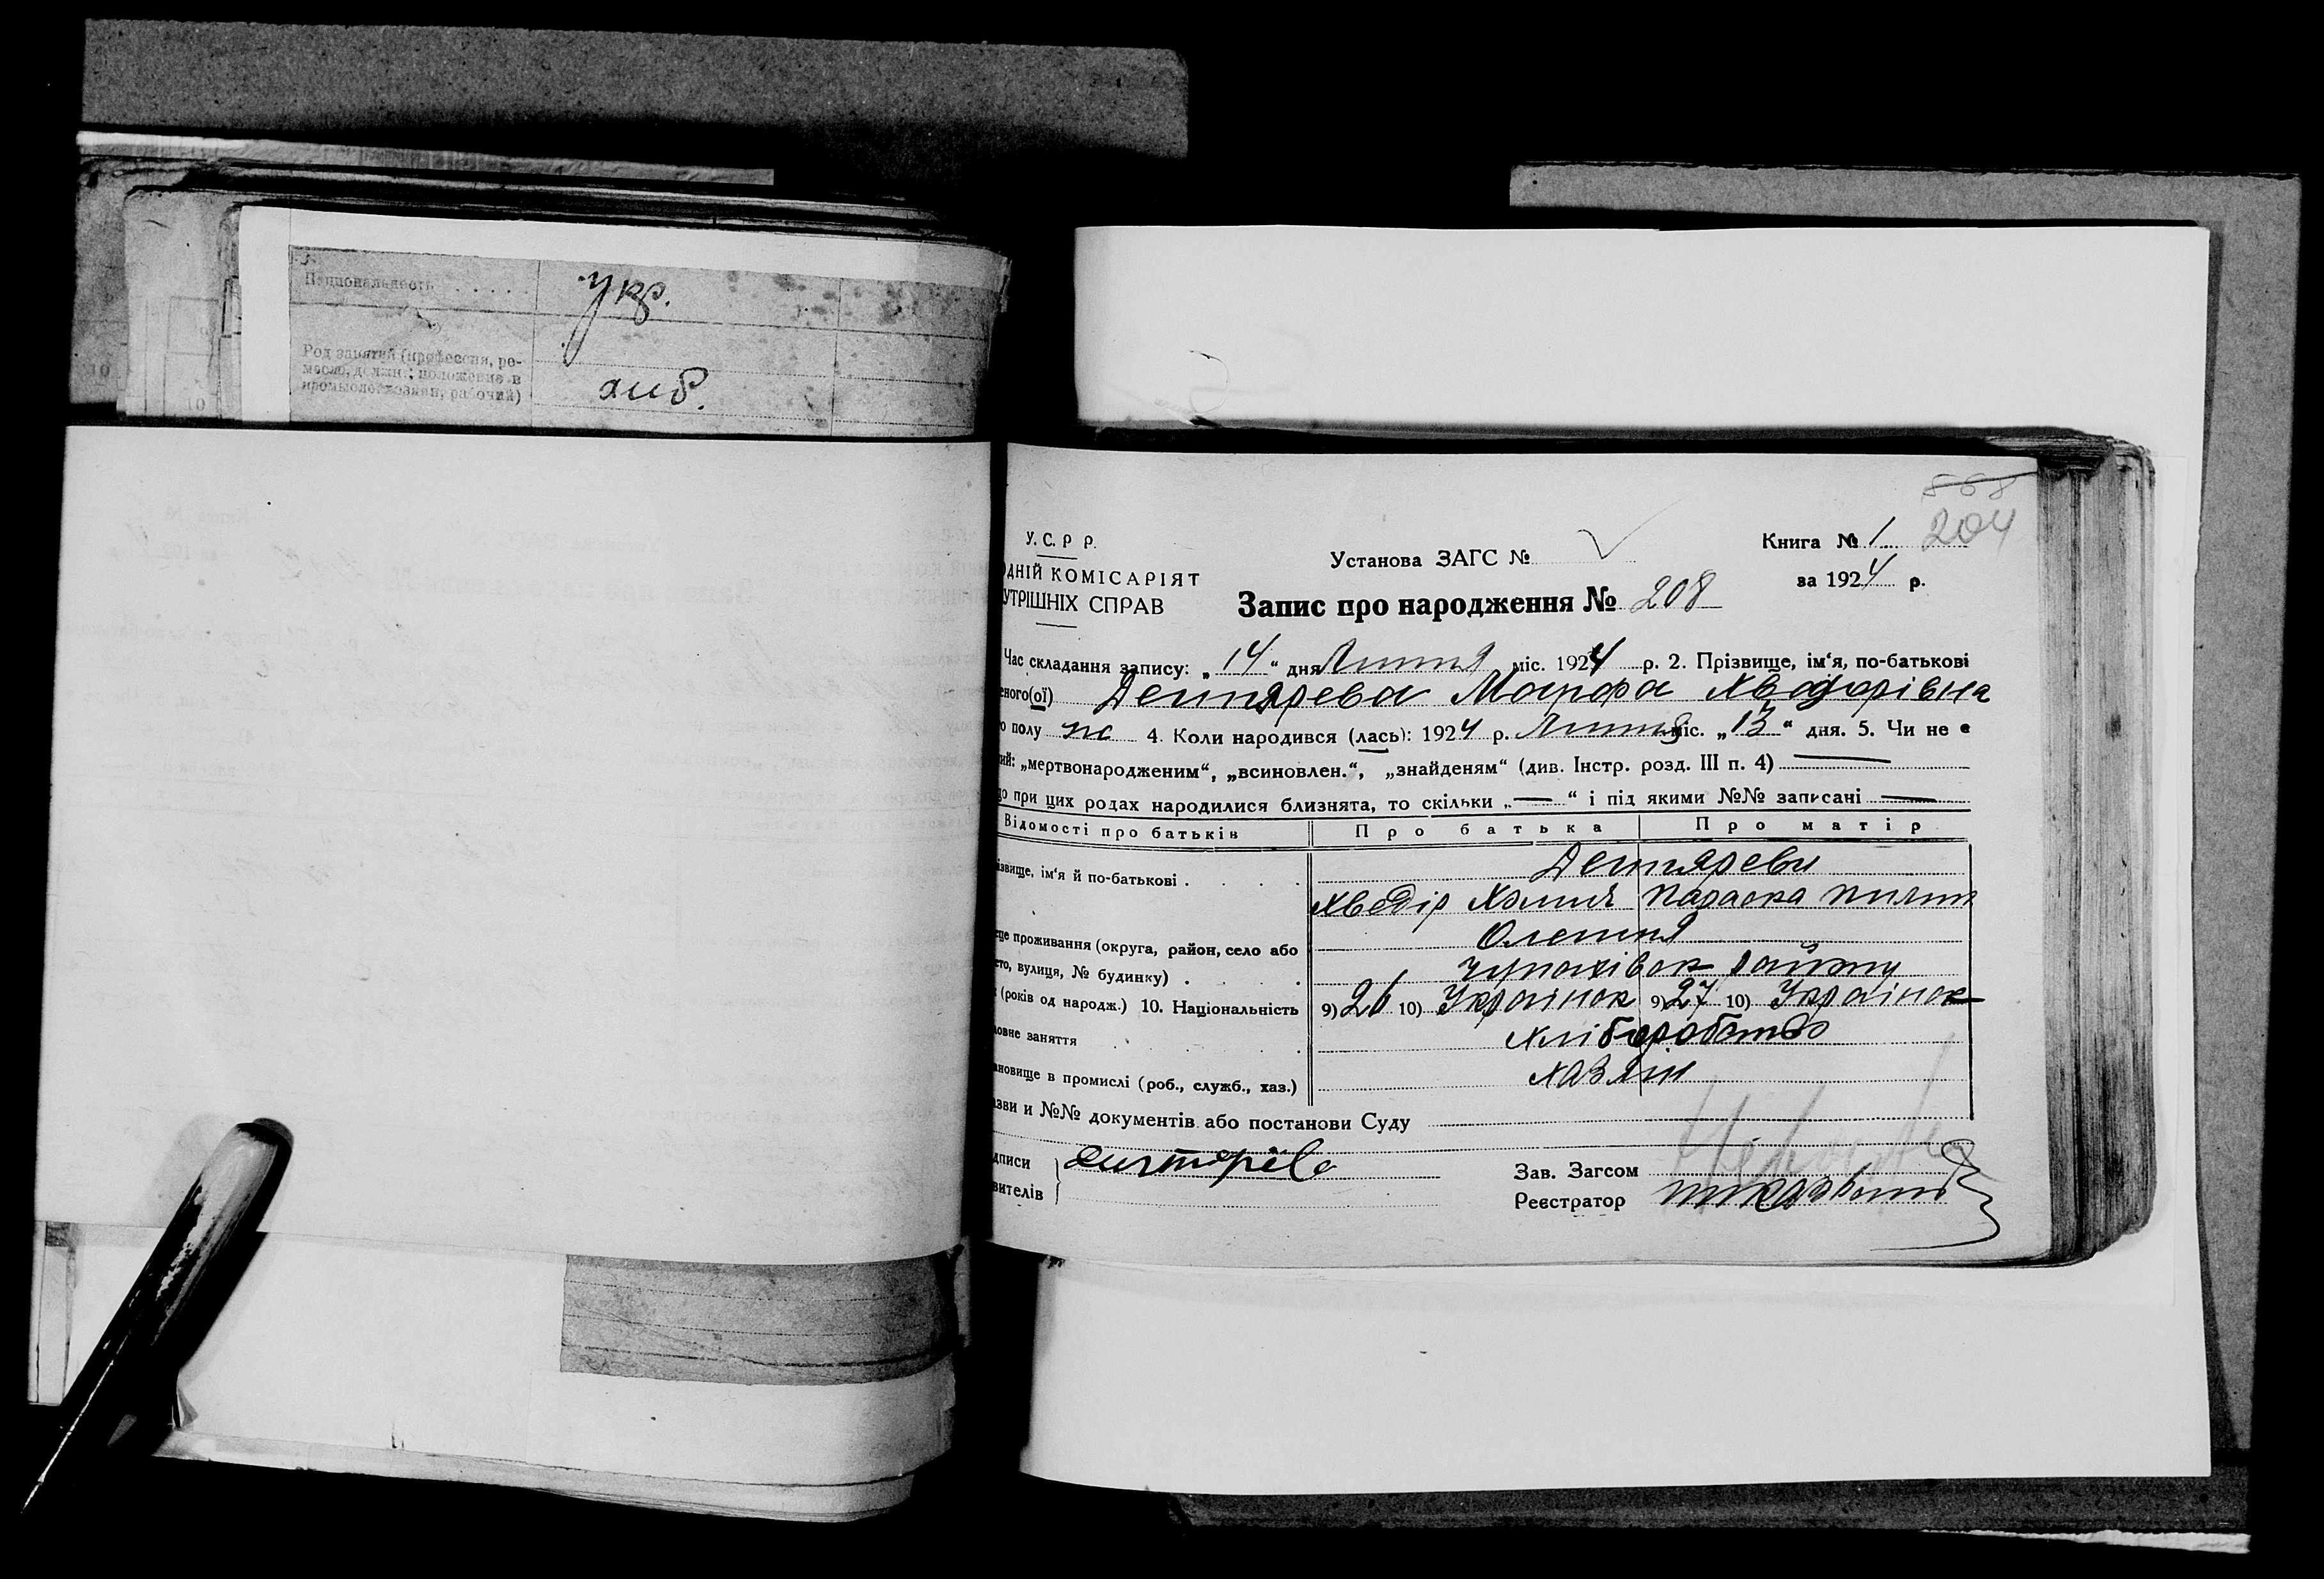 Национальность . . . . . укр.
Род занятий (профессия, ре-
месло, должн.; положение в
промысле: хозяин, рабочий) хліб.
558
204
У. С. Р. Р.
ОДНІЙ КОМІСАРІЯТ
УТРІШНІХ СПРАВ
Установа ЗАГС №
Книга № 1
за 1924 р.
Запис про народження № 208
Час складання запису: „14“ дня Липня міс. 1924 р. 2. Прізвище, ім‘я, по-батькові
еного(ої) Дегтярева Марфа Хведорівна
о полу ж 4. Коли народився (лась): 1924 р. Липня міс. „13“ дня. 5. Чи не є
ий: „мертвонародженим“, „всиновлен.“, „знайденям“ (див. Інстр. розд. III п. 4) —
що при цих родах народилися близнята, то скільки „—“ і під якими №№ записані —
Відомості про батьків Про батька Про матір
ізвище, ім‘я й по-батькові . . . . Дегтяреви
Хведір Параска
це проживання (округа, район, село або
сто, вулиця, № будинку) . . району
(років од народж.) 10. Національність 9) 26 10) Українок 9) 27 10) Українок
ловне заняття . . . Хліборобство
ановище в промислі (роб., служб., хаз.) хазяїн
зви и №№ документів або постанови Суду
дписи
вителів
Зав. Загсом
Реєстратор